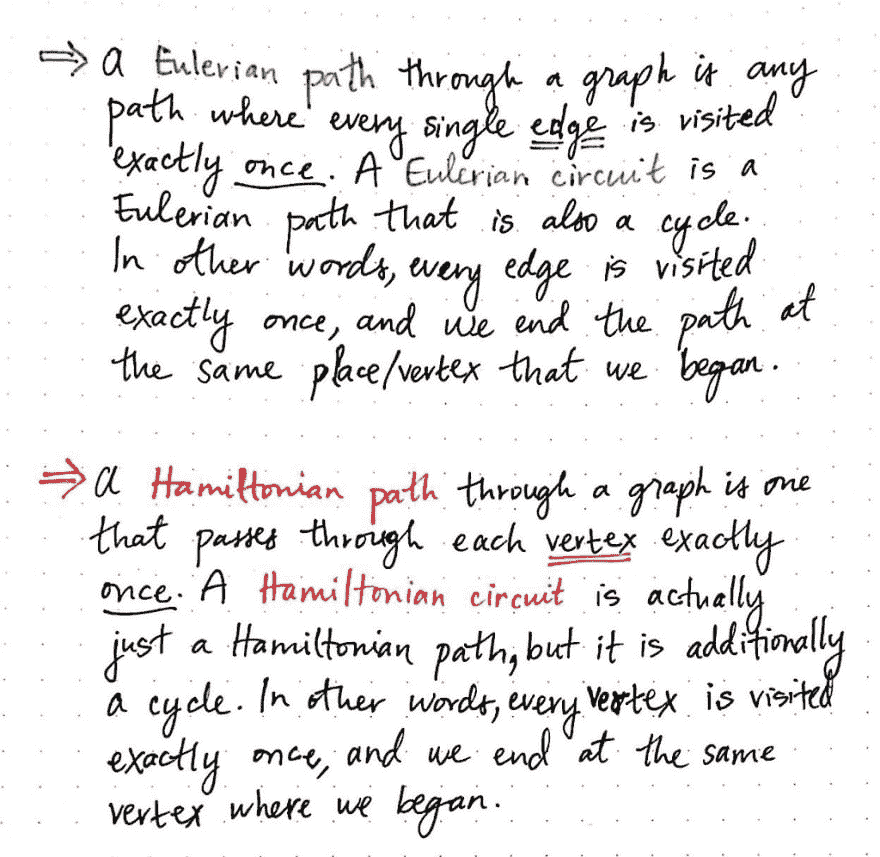 ⇒ a Eulerian path through a graph is any
path where every single edge is visited
exactly once. A Eulerian circuit is a
Eulerian path that is also a cycle.
In other words, every edge is visited
exactly once, and we end the path at
the same place/vertex that we began.
⇒ a Hamiltonian path through a graph is one
that passes through each vertex exactly
once. A Hamiltonian circuit is actually
just a Hamiltonian path, but it is additionally
a cycle. In other words, every vertex is visited
exactly once, and we end at the same
vertex where we began.